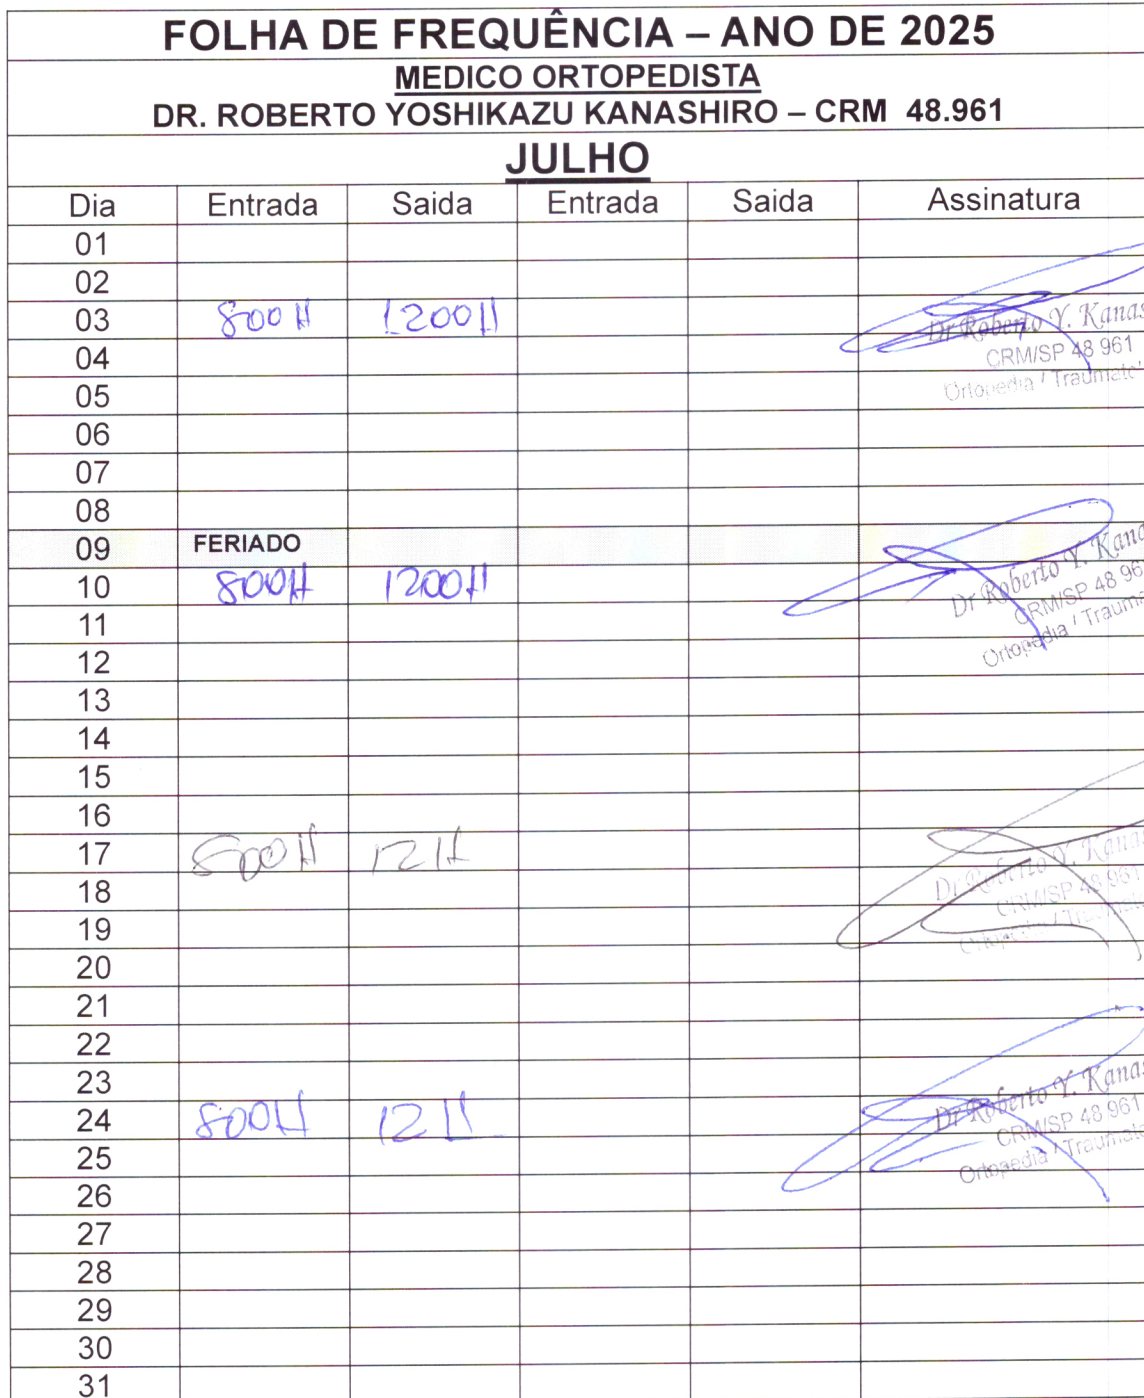 FOLHA DE FREQUÊNCIA – ANO DE 2025
MEDICO ORTOPEDISTA
DR. ROBERTO YOSHIKAZU KANASHIRO – CRM 48.961
JULHO
Dia Entrada Saida Entrada Saida Assinatura
01
02
03 800H 1200H
Dr Roberto Y. Kanas
CRM/SP 48 961
Ortopedia / Traumato
04
05
06
07
08
09 FERIADO
10 800H 1200H
Dr Roberto Y. Kana
CRM/SP 48 96
Ortopedia / Trauma
11
12
13
14
15
16
17 800H 12H
Dr Roberto Y. Kanas
CRM/SP 48 961
18
19
20
21
22
23
24 800H 12H
Dr Roberto Y. Kanas
CRM/SP 48 961
Ortopedia / Traumato
25
26
27
28
29
30
31